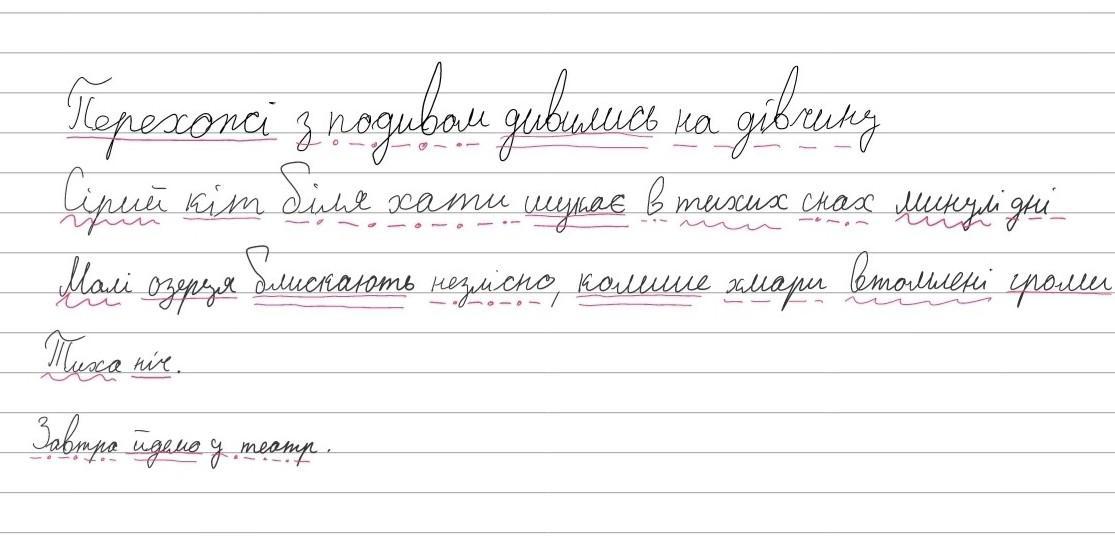 Перехожі з подивом дивились на дівчину
Сірий кіт біля хати шукає в тихих снах минулі дні
Малі озерця блискають незлісно, колише хмари втомлені громи
Тиха ніч.
Завтра йдемо у театр.